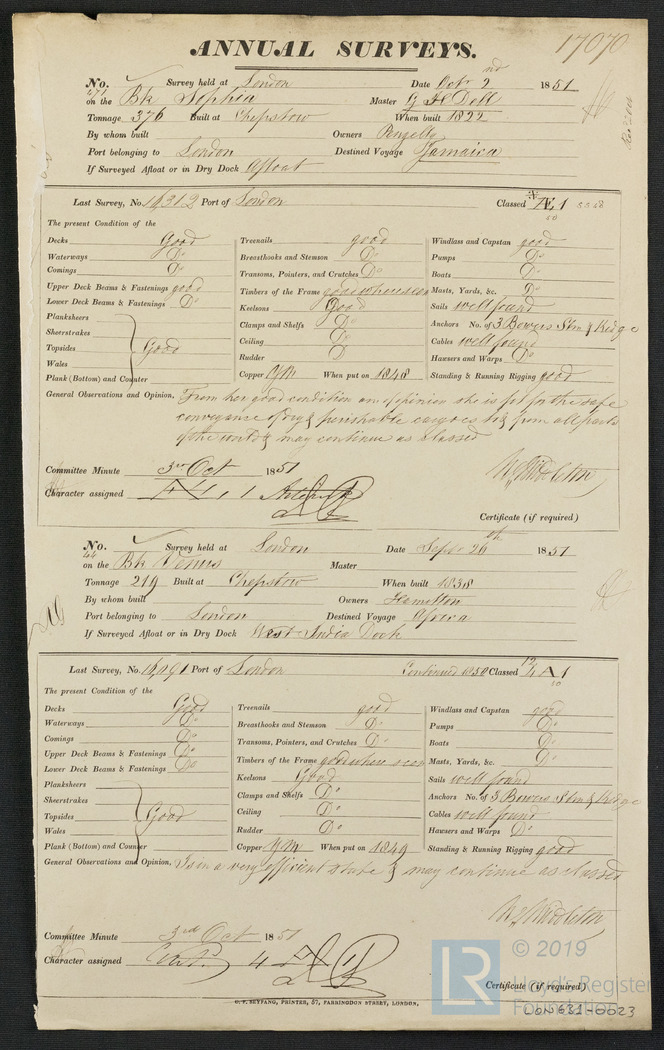 17070
ANNUAL SURVEYS.
No. 271 Survey held at London Date Octr 2nd 1851
on the Bk Sophia Master G H Dell
Tonnage 376 Built at Chepstow When built 1822
By whom built Owners Pengelly
Port belonging to London Destined Voyage Jamaica
If Surveyed Afloat or in Dry Dock Afloat
Last Survey, No. 16312 Port of London Classed *Æ1
The present Condition of the
Decks Good
Waterways Do
Comings Do
Upper Deck Beams & Fastenings good
Lower Deck Beams & Fastenings Do
Planksheers
Sheerstrakes
Topsides Good
Wales
Plank (Bottom) and Counter
Treenails good
Breasthooks and Stemson Do
Transoms, Pointers, and Crutches Do
Timbers of the Frame good where seen
Keelsons Good
Clamps and Shelfs Do
Ceiling Do
Rudder Do
Copper YM When put on 1848
Windlass and Capstan good
Pumps Do
Boats Do
Masts, Yards, &c. Do
Sails well found
Anchors No. of 3 Bowers Strm & Kedge
Cables well found
Hawsers and Warps Do
Standing & Running Rigging good
General Observations and Opinion, From her good condition am of opinion she is fit for the safe
conveyance of dry & perishable cargoes to & from all parts
of the world & may continue as classed
W Middleton
Committee Minute 3rd Oct 1851
Character assigned
Certificate (if required)
No. 44 Survey held at London Date Septr 26th 1851
on the Bk Venus Master
Tonnage 219 Built at Chepstow When built 1838
By whom built Owners Hamilton
Port belonging to London Destined Voyage Africa
If Surveyed Afloat or in Dry Dock West India Dock
Last Survey, No. Port of London Continued 1850 Classed 12/4 A1
The present Condition of the
Decks Good
Waterways Do
Comings Do
Upper Deck Beams & Fastenings Do
Lower Deck Beams & Fastenings Do
Planksheers
Sheerstrakes
Topsides Good
Wales
Plank (Bottom) and Counter
Treenails good
Breasthooks and Stemson Do
Transoms, Pointers, and Crutches Do
Timbers of the Frame good where seen
Keelsons Good
Clamps and Shelfs Do
Ceiling Do
Rudder Do
Copper YM When put on 1849
Windlass and Capstan good
Pumps Do
Boats Do
Masts, Yards, &c. Do
Sails well found
Anchors No. of 3 Bowers Strm & Kedge
Cables well found
Hawsers and Warps Do
Standing & Running Rigging good
General Observations and Opinion, Is in a very efficient state & may continue as classed
W Middleton
Committee Minute 3rd Oct 1851
Character assigned Contd 4 A 1
Certificate (if required)
G. F. SEYFANG, PRINTER, 57, FARRINGDON STREET, LONDON,
LR © 2019
Lloyd's Register
Foundation
LON631-0023